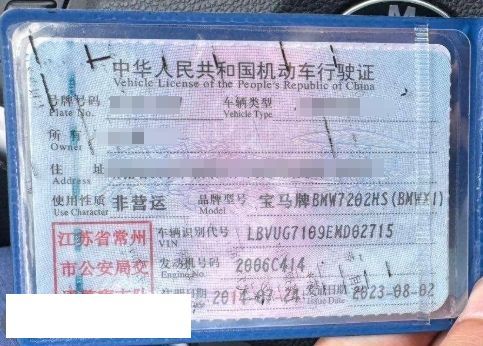 中华人民共和国机动车行驶证
Vehicle License of the People's Republic of China
号牌号码 Plate No. 车辆类型 Vehicle Type
所 Owner
住 址 Address
使用性质 Use Character 非营运 品牌型号 Model 宝马牌BMW7202HS(BMWX1)
江苏省常州
市公安局交
车辆识别代号 VIN LBVUG7109EMD02715
发动机号码 Engine No. 2006C414
注册日期 2014-07-24 发证日期 Issue Date 2023-08-02